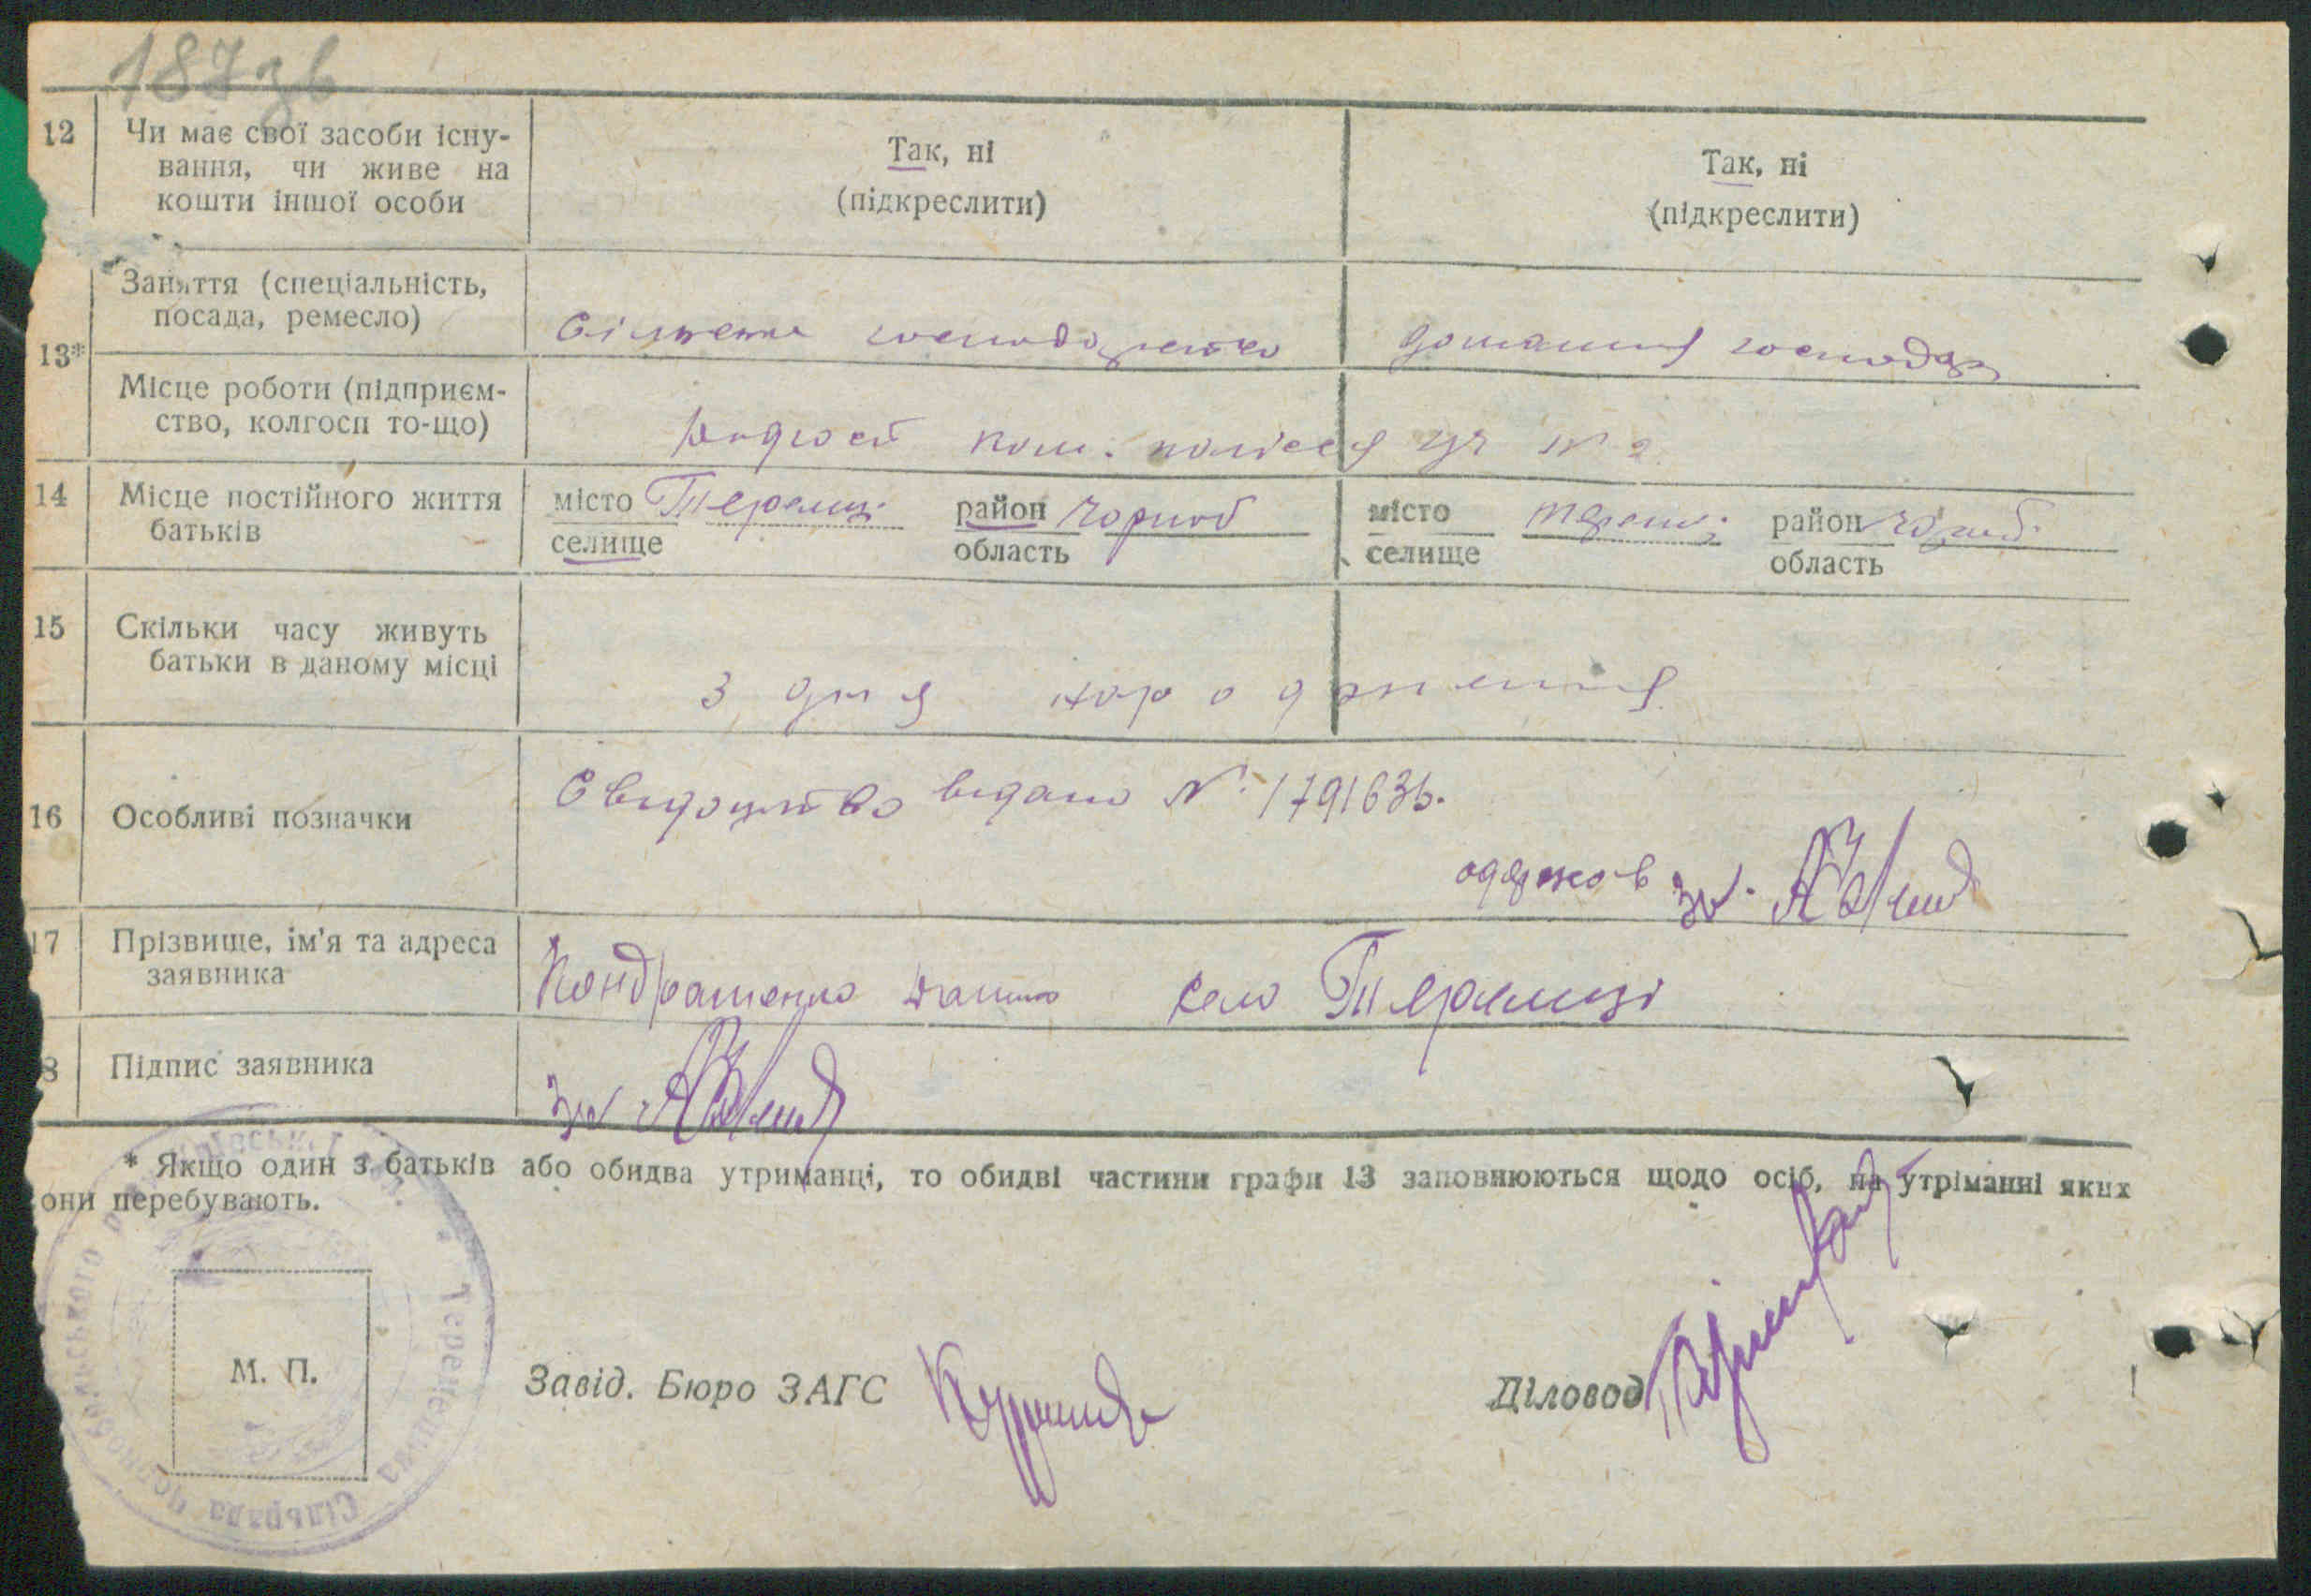 187 зв
12 Чи має свої засоби існу-
вання, чи живе на
кошти іншої особи
Так, ні
(підкреслити)
Так, ні
(підкреслити)
13*
Заняття (спеціальність,
посада, ремесло)
господарство
домашня господар
Місце роботи (підприєм-
ство, колгосп то-що)
14 Місце постійного життя
батьків
місто Теремці район Чорноб
селище область
місто Теремці район Чорноб
селище область
15 Скільки часу живуть
батьки в даному місці
З дня народження
16 Особливі позначки
Свидоцтво видано № 1791636.
одержав
17 Прізвище, ім'я та адреса
заявника
Кондратенко село Теремці
8 Підпис заявника
* Якщо один з батьків або обидва утриманці, то обидві частини графи 13 заповнюються щодо осіб, на утріманні яких
они перебувають.
М. П.
Завід. Бюро ЗАГС
Діловод